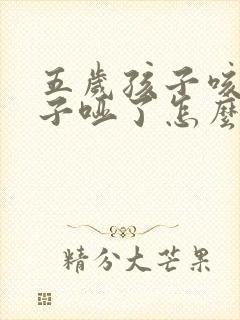 五歲孩子咳
子哑了怎麽
精分大芒果